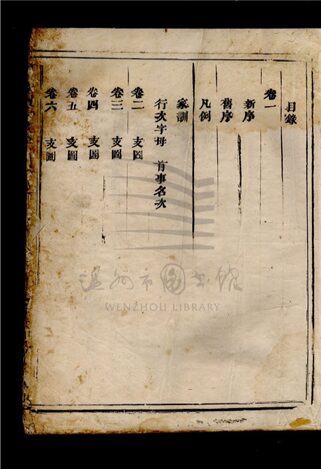 目錄
卷一
新序
舊序
凡例
家訓
行次字母 首事名次
卷二 支圖
卷三 支圖
卷四 支圖
卷五 支圖
卷六 支圖
温州市图书馆
WENZHOU LIBRARY